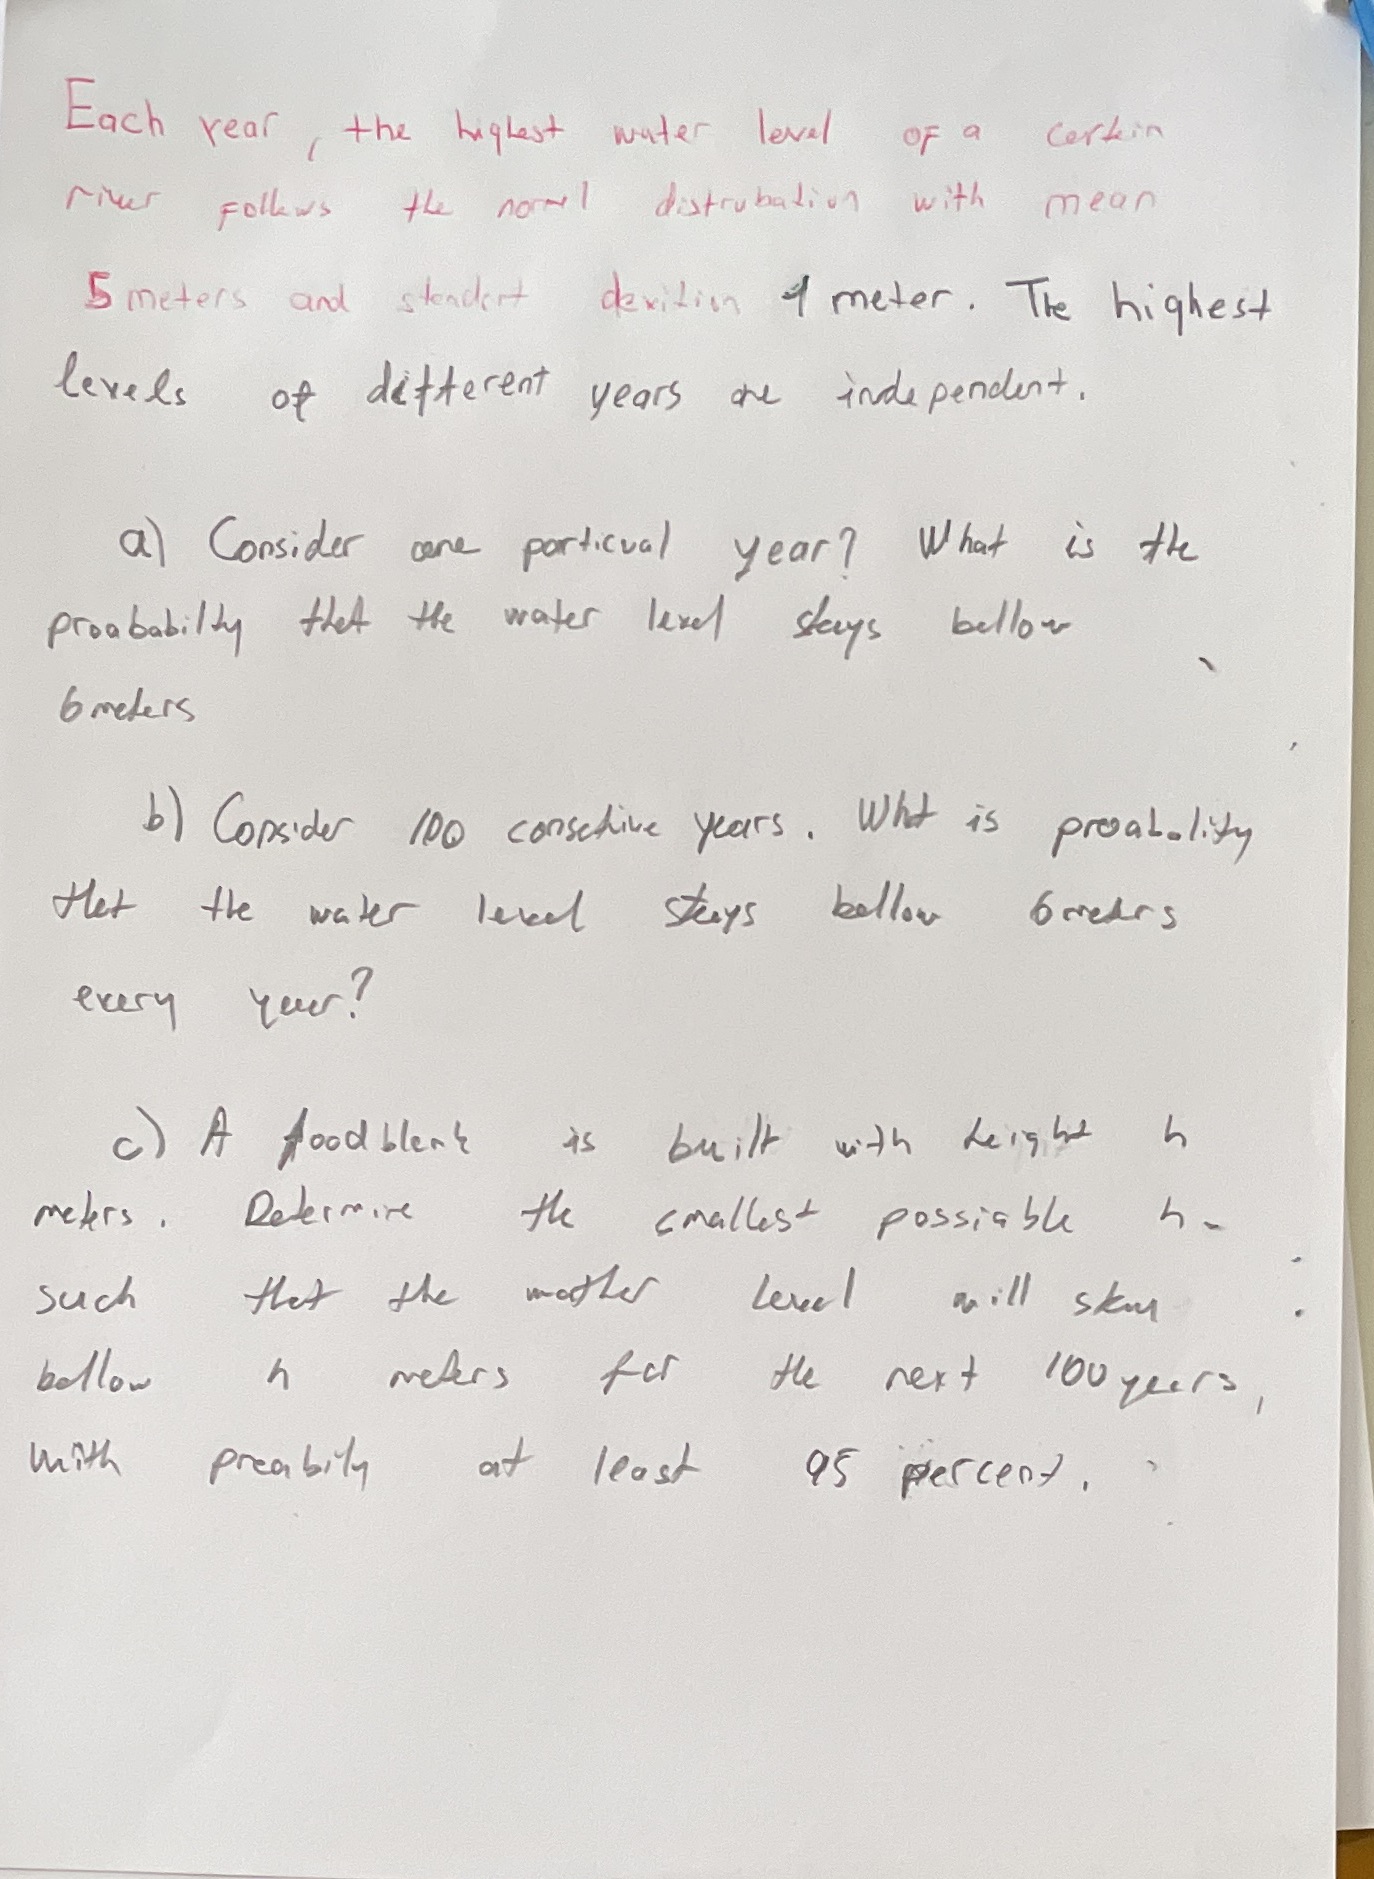 Each year, the highest water level of a certein
river follows the norml distrubation with mean
5 meters and stendort devition 1 meter. The highest
levels of different years are independent.
a) Consider one particual year? What is the
proababilty thet the water level steys bellow
6 meters
b) Consider 100 consective years. Wht is proabolity
thet the water level steys bellow 6 meters
every year?
c) A floodblenk is built with height h
meters. Determine the smallest possiable h
such thet the wather level will stey
bellow h meters for the next 100 yeers,
with preabily at least 95 percent.